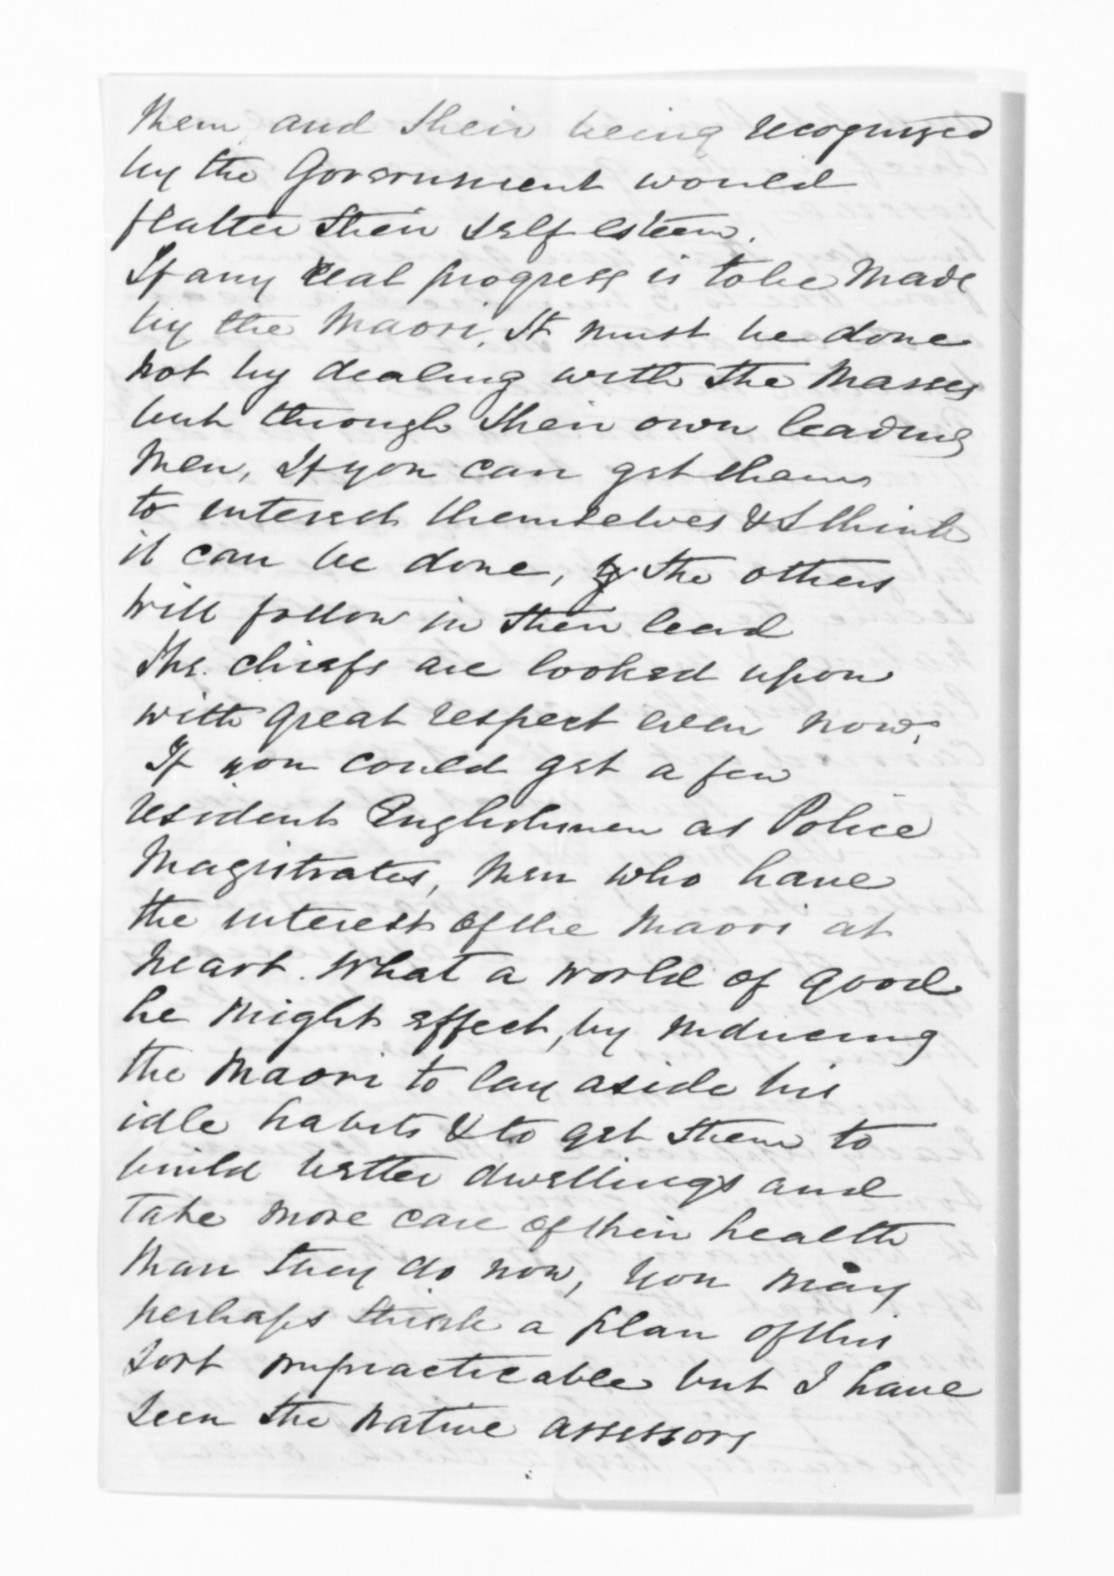 them and their being recognized
by the Government would
flatter their self esteem.
If any real progress is to be made
by the Maori, It must be done
not by dealing with the Masses
but through their own leading
Men, If you can get them
to interest themselves & I think
it can be done, the others
will follow in their lead
The chiefs are looked upon
with great respect even now.
If you could get a few
resident Englishmen as Police
Magistrates, Men who have
the interest of the Maori at
heart. What a world of good
he might effect, by inducing
the Maori to lay aside his
idle habits & to get them to
build better dwellings and
take more care of their health
than they do now, You may
perhaps think a plan of this
sort impracticable but I have
seen the Native assessors